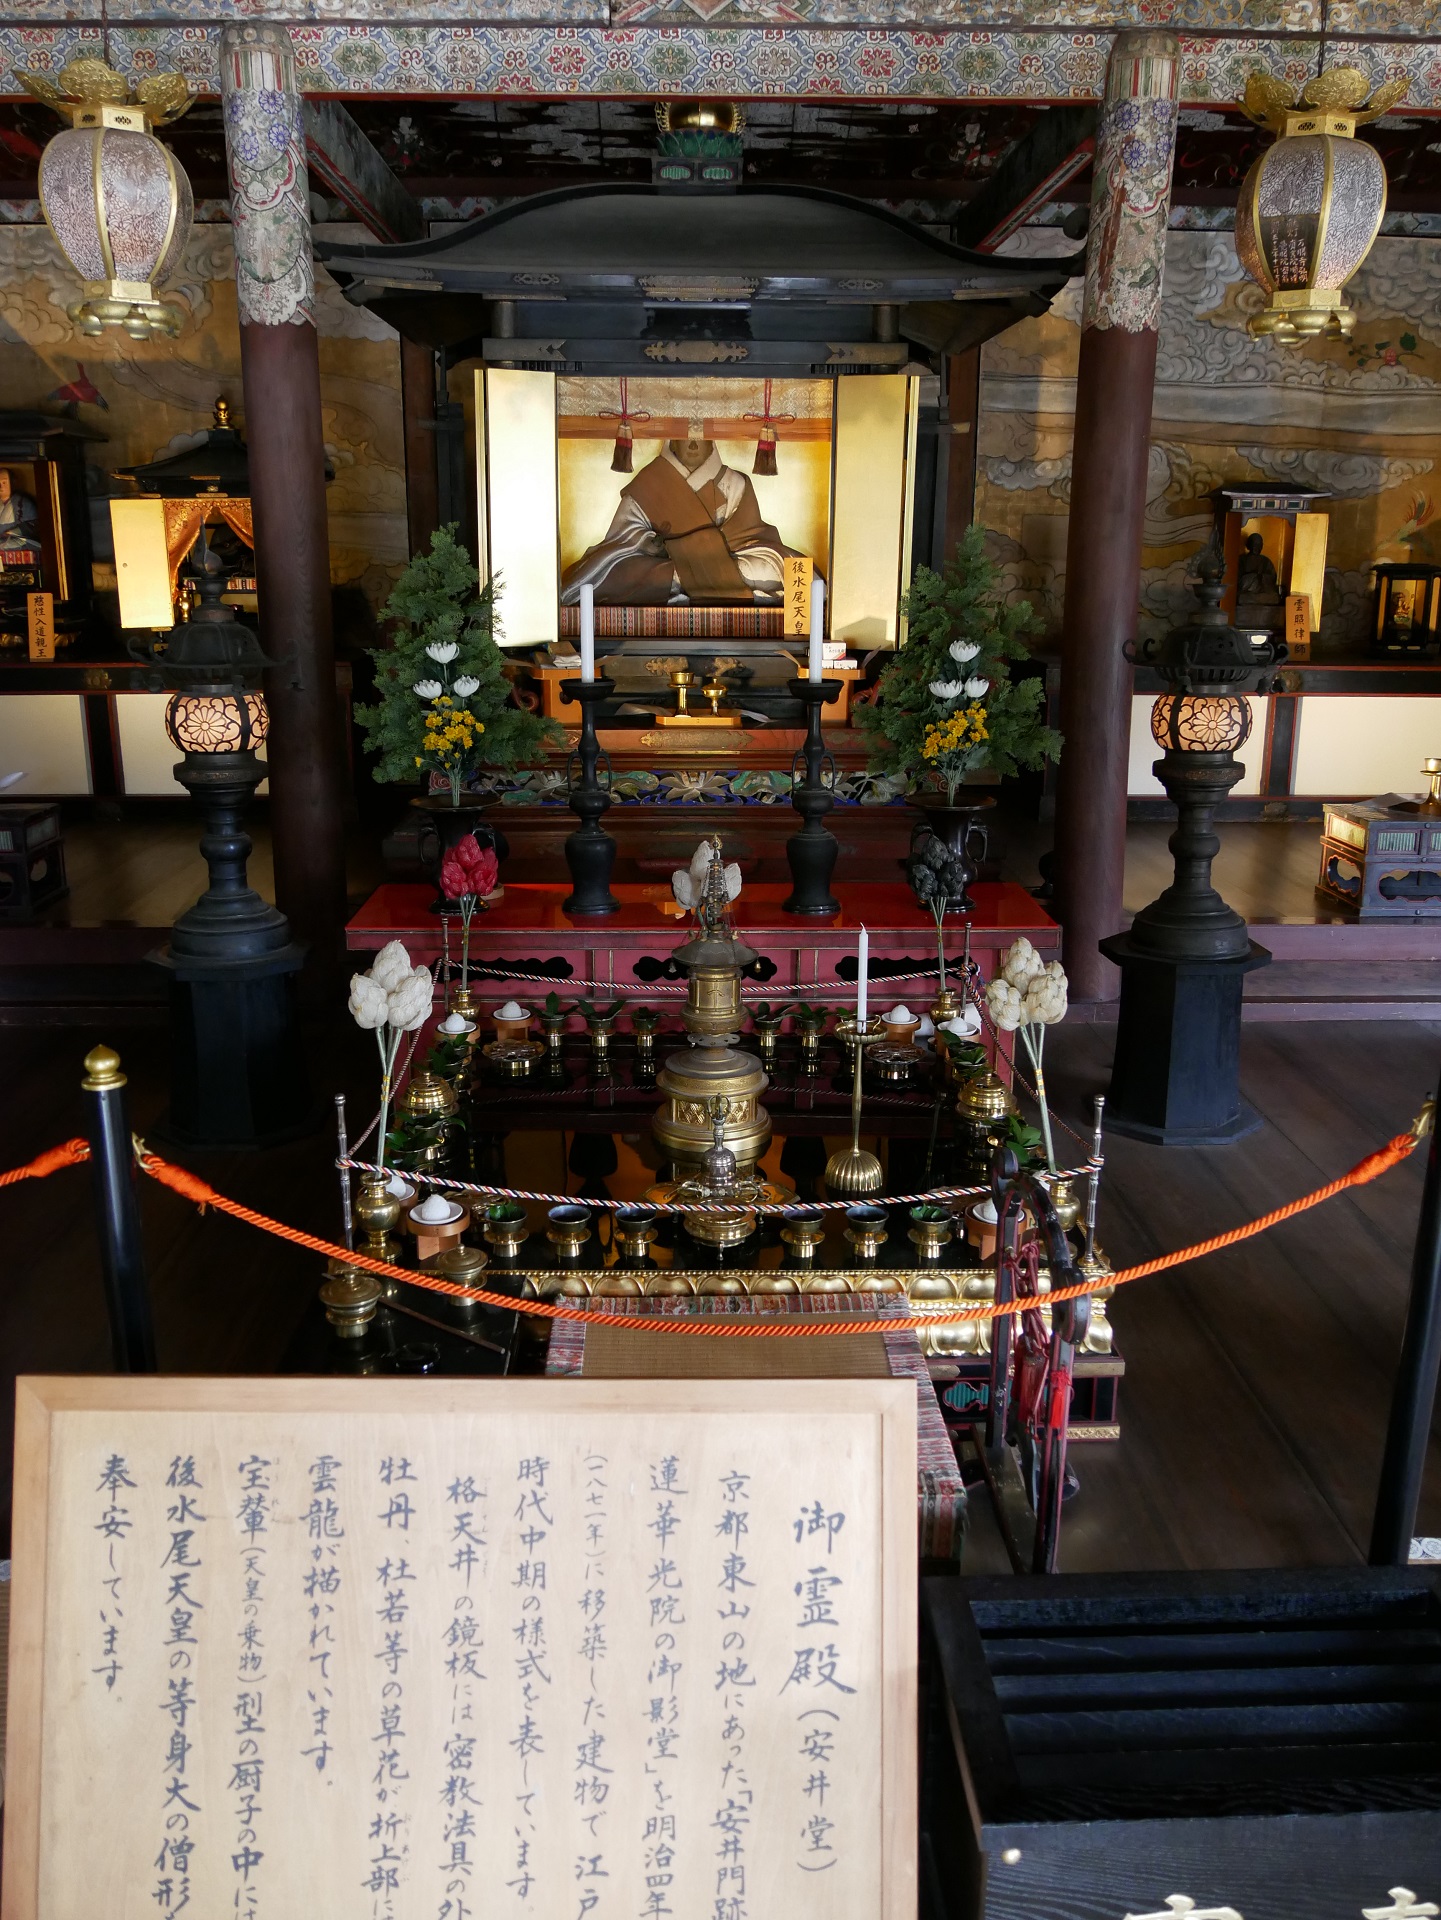 御霊殿（安井堂）
京都東山の地にあった「安井門跡
蓮華光院の御影堂」を明治四年
（一八七一年）に移築した建物で江戸
時代中期の様式を表しています。
格天井の鏡板には密教法具の外
牡丹、杜若等の草花が折上部に
雲龍が描かれています。
宝輦（天皇の乗物）型の厨子の中には
後水尾天皇の等身大の僧形
奉安しています。
後水尾天皇
慈性入道親王
雲照律師